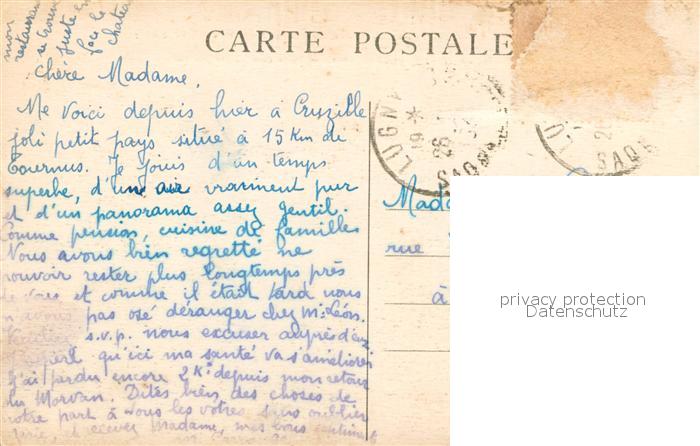 mon
restaurant
se trouve
juste en
face le
chateau
CARTE POSTALE
Chère Madame,
Me voici depuis hier à Cruzille
joli petit pays situé à 15 Km de
Tournus. Je jouis d'un temps
superbe, d'une air vraiment pur
et d'un panorama assez gentil.
Comme pension, cuisine de familles
Nous avons bien regretté ne
pouvoir rester plus longtemps près
de vous et comme il était tard nous
n'avons pas osé déranger chez Mr Léon.
Veuillez s.v.p. nous excuser auprès d'eux.
qu'ici ma santé va s'améliorer
J'ai perdu encore 2 Ks depuis mon retour
du Morvan. Dites bien des choses de
notre part à tous les votres sans oublier
et recevez Madame, mes bons
LUGN
19 *
26
SAO
LU
SAO
Mada
rue
à
privacy protection
Datenschutz